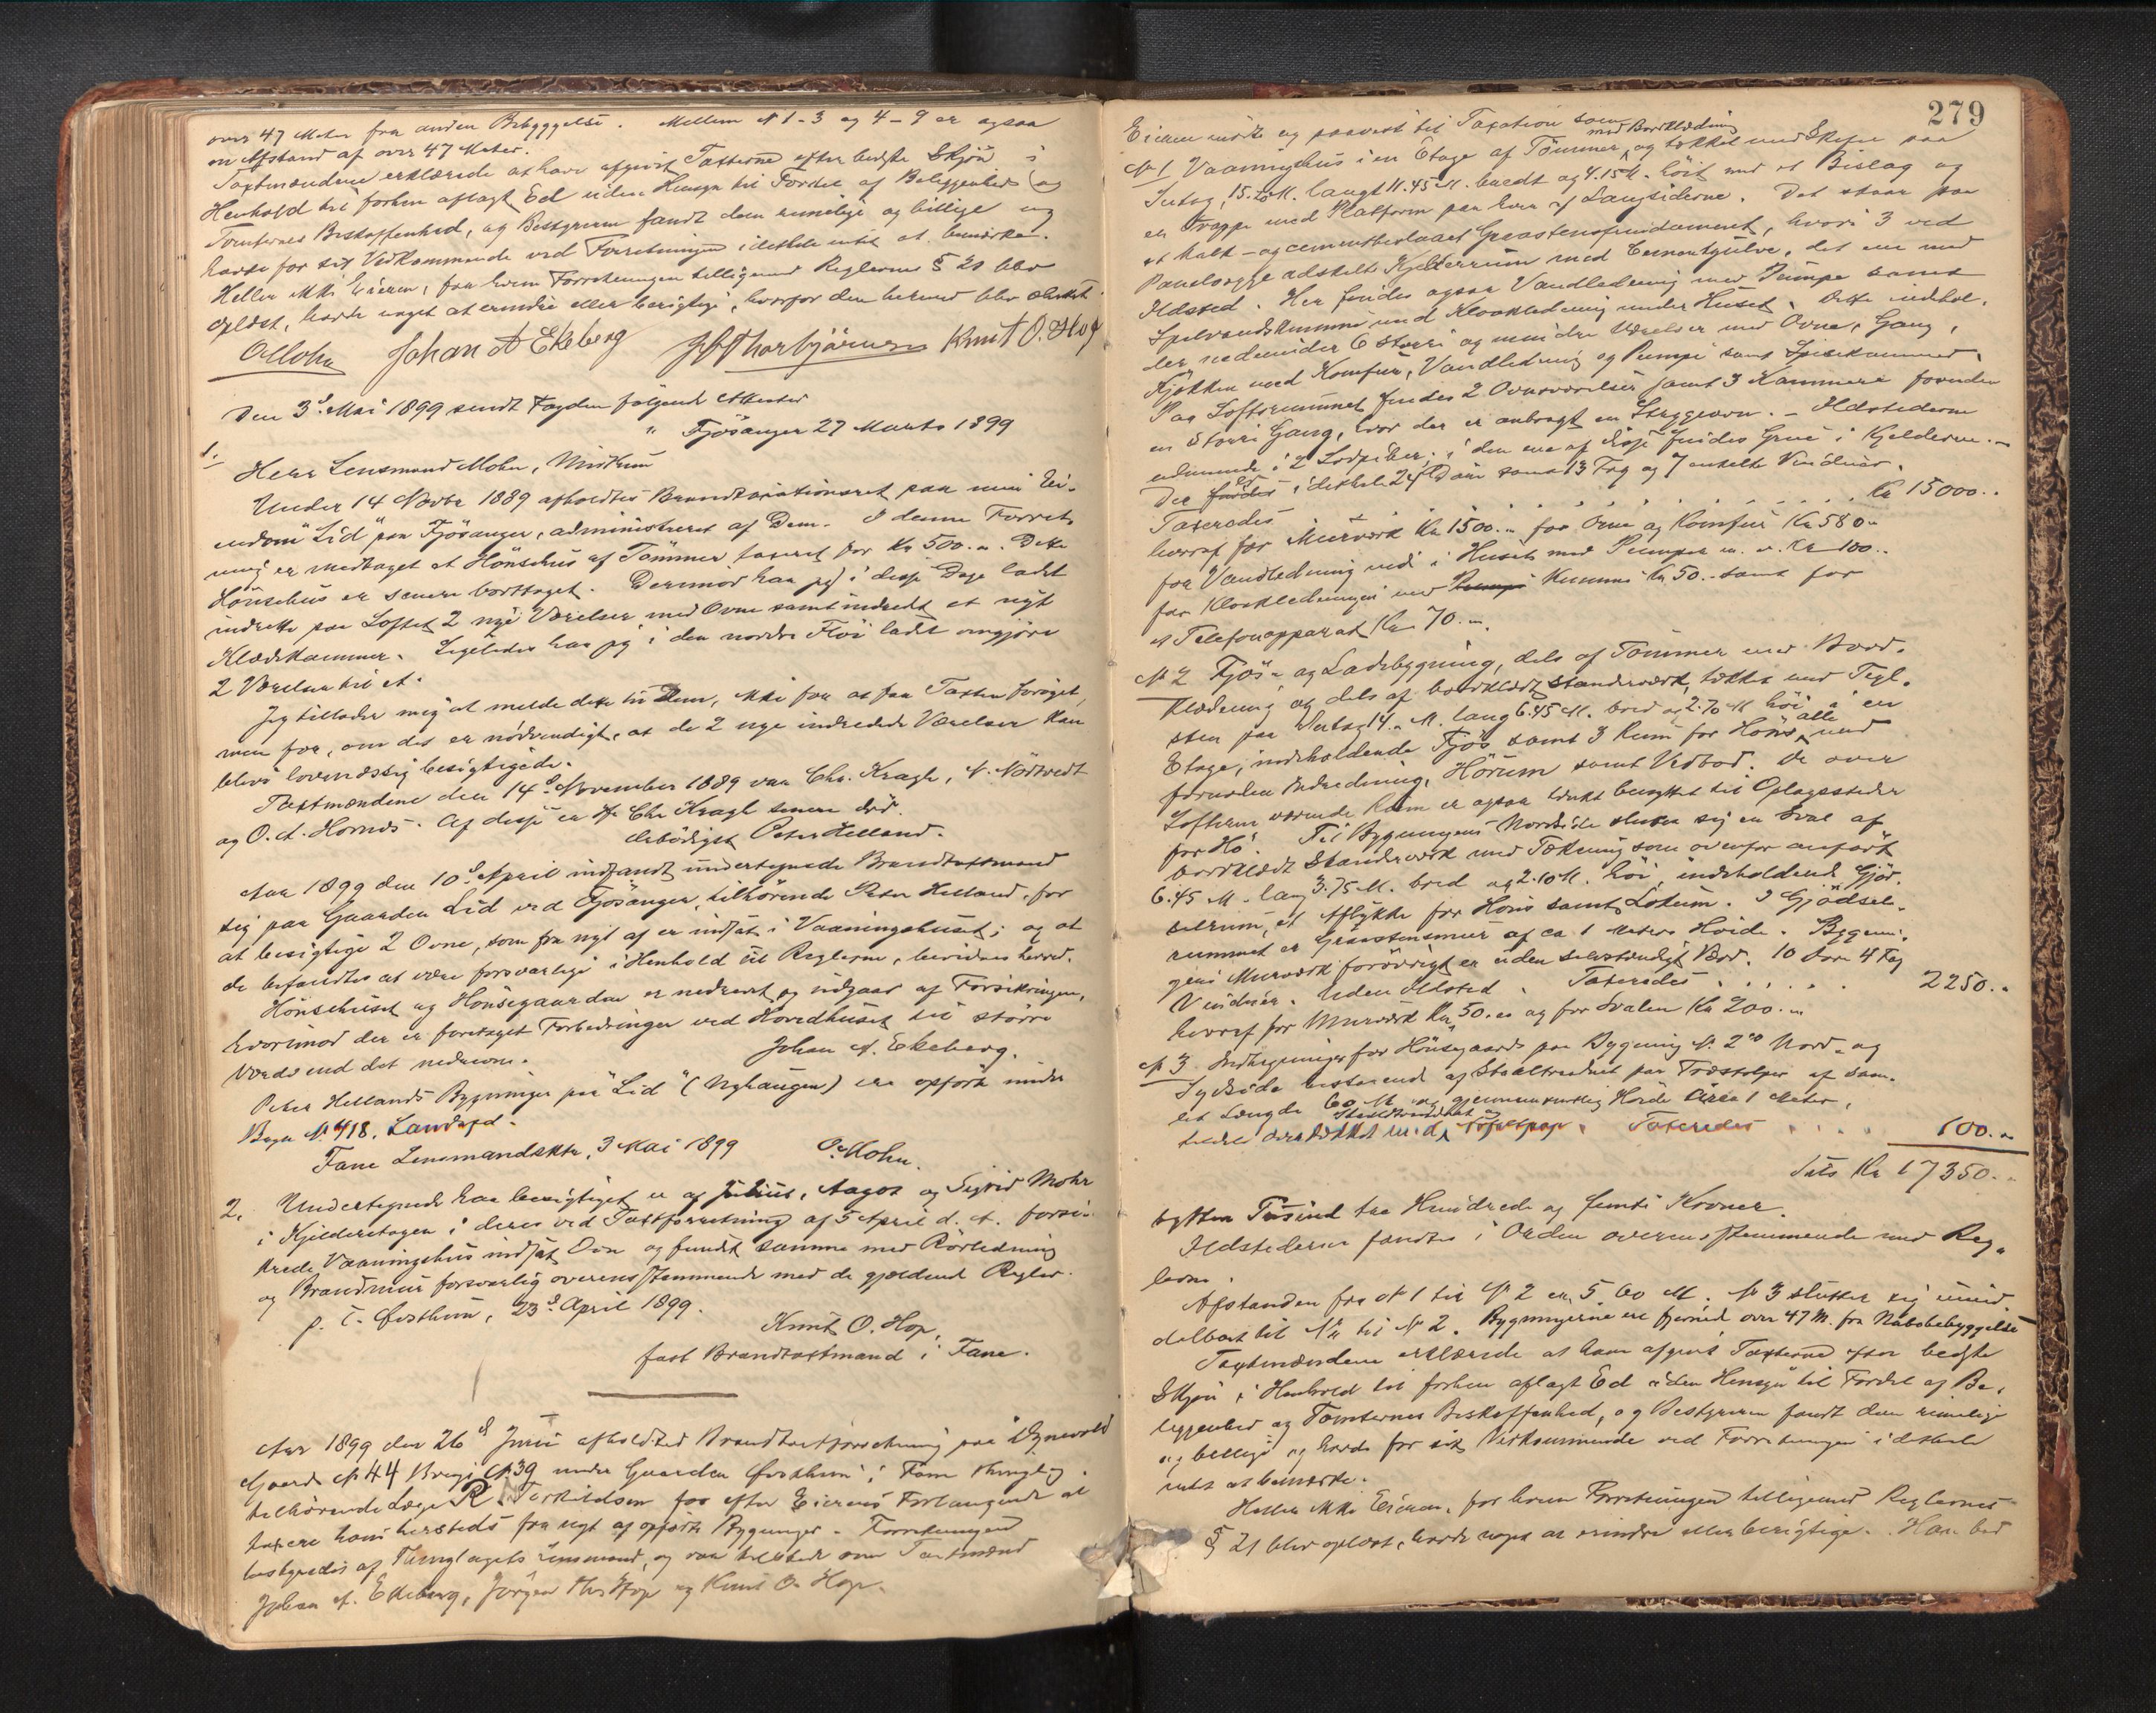 over 47 Meter fra anden Bebyggelse. Mellem N 1-3 og 4-9 er ogsaa
en Afstand af over 47 Meter.
Taxtmændene erklærede at have afgivet Taxterne efter bedste Skjön i
Henhold til forhen aflagt Ed uden Hensyn til Fordel af Beliggenhed og
Tomternes Beskaffenhed, og Bestyreren fandt dem rimelige og billige og
havde for sit Vedkommende ved Forretningen idethele intet at bemærke.
Heller ikke Eieren, for hvem Forretningen tilligemed Reglernes § 21 blev
oplæst, havde noget at erindre eller berigtige, hvorfor den hermed blev sluttet.
O Mohn Johan A Ekeberg Knut O. Hop
Den 3d Mai 1899 sendt Fogden følgende Attester
" Fjösanger 27 Marts 1899
1.
Herr Lensmand Mohn, Midtun
Under 14 Novbr 1889 afholdtes Brandtaxationsret paa min Ei-
endom "Lid" paa Fjösanger, administreret af Dem. I denne Forret-
ning er medtaget et Hönsehus af Tömmer taxeret for Kr 500.-. Dette
Hönsehus er senere borttaget. Derimod har jeg i disse Dage ladet
indrette paa Loftet 2 nye Værelser med Ovne samt indredet et nyt
Klædekammer. Ligeledes har jeg i den nordre Flöi ladet omgjöre
2 Værelser til et.
Jeg tillader mig at melde dette til Dem, ikke for at faa Taxten foröget,
men for, om det er nödvendigt, at de 2 nye indredede Værelser kan
blive lovmæssig besigtigede.
Taxtmændene den 14d November 1889 var Chr. Kragh, N. Nöttvedt
og O. A. Hornes. Af disse er Hr Chr Kragh senere död.
Ærbödigst Peter Helland.
Aar 1899 den 10d April indfandt undertegnede Brandtaxtmand
sig paa Gaarden Lid ved Fjösanger, tilhörende Peter Helland, for
at besigtige 2 Ovne, som fra nyt af er indsat i Vaaningshuset; og at
de befandtes at være forsvarlige i Henhold til Reglerne, bevidnes herved.
Hönsehuset og Hönsegaarden er nedrevet og udgaar af Forsikringen,
hvorimod der er foretaget Forbedringer ved Hovedhuset til större
Værdi end det nedrevne.
Johan A. Ekeberg.
Peter Hellands Bygninger paa "Lid" (Nyhaugen) ere opförte under
Brugs N 418. Landsfd.
Fane Lensmandsktr, 3 Mai 1899 O. Mohn.
2. Undertegnede har besigtiget en af Julius, Aagot og Sigrid Mohr
i Kjelderetagen i deres ved Taxtforretning af 5 April d. A. forsi-
krede Vaaningshus indsat Ovn og fundet samme med Rörledning
og Brandmur forsvarlig overensstemmende med de gjældende Regler.
p. t. Östhun, 23d April 1899.
Knut O. Hop,
fast Brandtaxtmand i Fane.
Aar 1899 den 26d Juni afholdtes Brandtaxtforretning paa
Gaards N 44 Brugs N 39 under Gaarden i Fane Thinglag
tilhörende Læge R. Terkildsen for efter Eierens Forlangende at
taxere hans hersteds fra nyt af opförte Bygninger. Forretningen
bestyredes af Thinglagets Lensmand, og var tilstede som Taxtmænd
Johan A. Ekeberg, Jörgen Hop og Knut O. Hop.
279
Eieren mödte og paaviste til Taxation som
med Bordklædning
N 1 Vaaningshus i en Etage af Tömmer, og tækket med Skifer paa
Sutag, 15.20 M. langt 11.45 M. bredt og 4.15 M. höit med et Bislag og
en Trappe med Platform paa hver af Langsiderne. Det staar paa
et kalk- og cementbeslaaet Graastensfundament, hvori 3 ved
Panelvægge adskilte Kjelderrum med Cementgulve, det ene med
Ildsted. Her findes ogsaa Vandledning med Pumpe samt
Spilvandskumme med Kloakledning under Huset. Dette indehol-
der nedenunder 6 större og mindre Værelser med Ovne, Gang,
Kjökken med Komfur, Vandledning og Pumpe samt Spisekammer.
Paa Loftsrummet findes 2 Ovnsværelser samt 3 Kammere foruden
en större Gang, hvor der er anbragt en Strygeovn. - Ildstederne
udmunde i 2 Lodpiber; i den ene af disse findes Grue i Kjelderen. -
Der er idethele 24 Döre samt 13 Fag og 7 enkelte Vinduer.
Taxeredes . . . . . . Kr 15000..
hvoraf for Murværk Kr 1500.- for Ovne og Komfur Kr 580.-
for Vandledning ved i Huset med Pumper m. v. Kr 100..
for Kloakledningen med Kumme Kr 50.- samt for
et Telefonapparat Kr 70.-.
N 2 Fjös- og Ladebygning, dels af Tömmer med Bord-
klædning og dels af bordklædt Standerværk, tækket med Tegl-
sten paa Sutag 14.- M. lang 6.45 M. bred og 2.70 M höi i en
Etage; indeholdende Fjös samt 3 Rum for Höns, alle med
fornøden Indredning, Hörum samt Vedbod. De over
Lofterne værende Rum er ogsaa tænkt benyttet til Oplagssteder
for Hö. Til Bygningens Nordside slutter sig en Sval af
bordklædt Standerværk med Tækning som ovenfor anfört
6.45 M. lang 3.75 M. bred og 2.10 M. höi, indeholdende Gjöd-
selrum, et Aflukke for Höns samt Lokum. I Gjödsel-
rummet er Graastensmur af ca 1 Meters Höide. Bygnin-
gens Murværk forövrigt er uden selvstændigt Værd. 10 Döre 4 Fag
Vinduer. Uden Ildsted. Taxeredes . . . . . 2250.-
hvoraf for Murværk Kr 50.- og for Svalen Kr 200.-
N 3. Indhegninger for Hönsegaarde paa Bygning N. 2's Nord- og
Sydside bestaaende af Staaltraadnet paa Træstolper af sam-
let Længde 60 M og gjennemsnitlig Höide Circa 1 Meter,
Staaltraadnet og
delvis overtækket med Tagpap. Taxeredes . . . . 100.-
Sats Kr 17350.-
sytten Tusind tre Hundrede og femti Kroner.
Ildstederne fandtes i Orden overensstemmende med Reg-
lerne.
Afstanden fra N 1 til N 2 er 5.60 M. N 3 slutter sig umid-
delbart til N 2. Bygningerne ere fjernet over 47 M. fra Nabobebyggelse
Taxtmændene erklærede at have afgivet Taxterne efter bedste
Skjön i Henhold til forhen aflagt Ed uden Hensyn til Fordel af Be-
liggenhed og Tomternes Beskaffenhed, og Bestyreren fandt dem rimelige
og billige og havde for sit Vedkommende ved Forretningen idethele
intet at bemærke.
Heller ikke Eieren, for hvem Forretningen tilligemed Reglernes
§ 21 blev oplæst, havde noget at erindre eller berigtige. Han bad